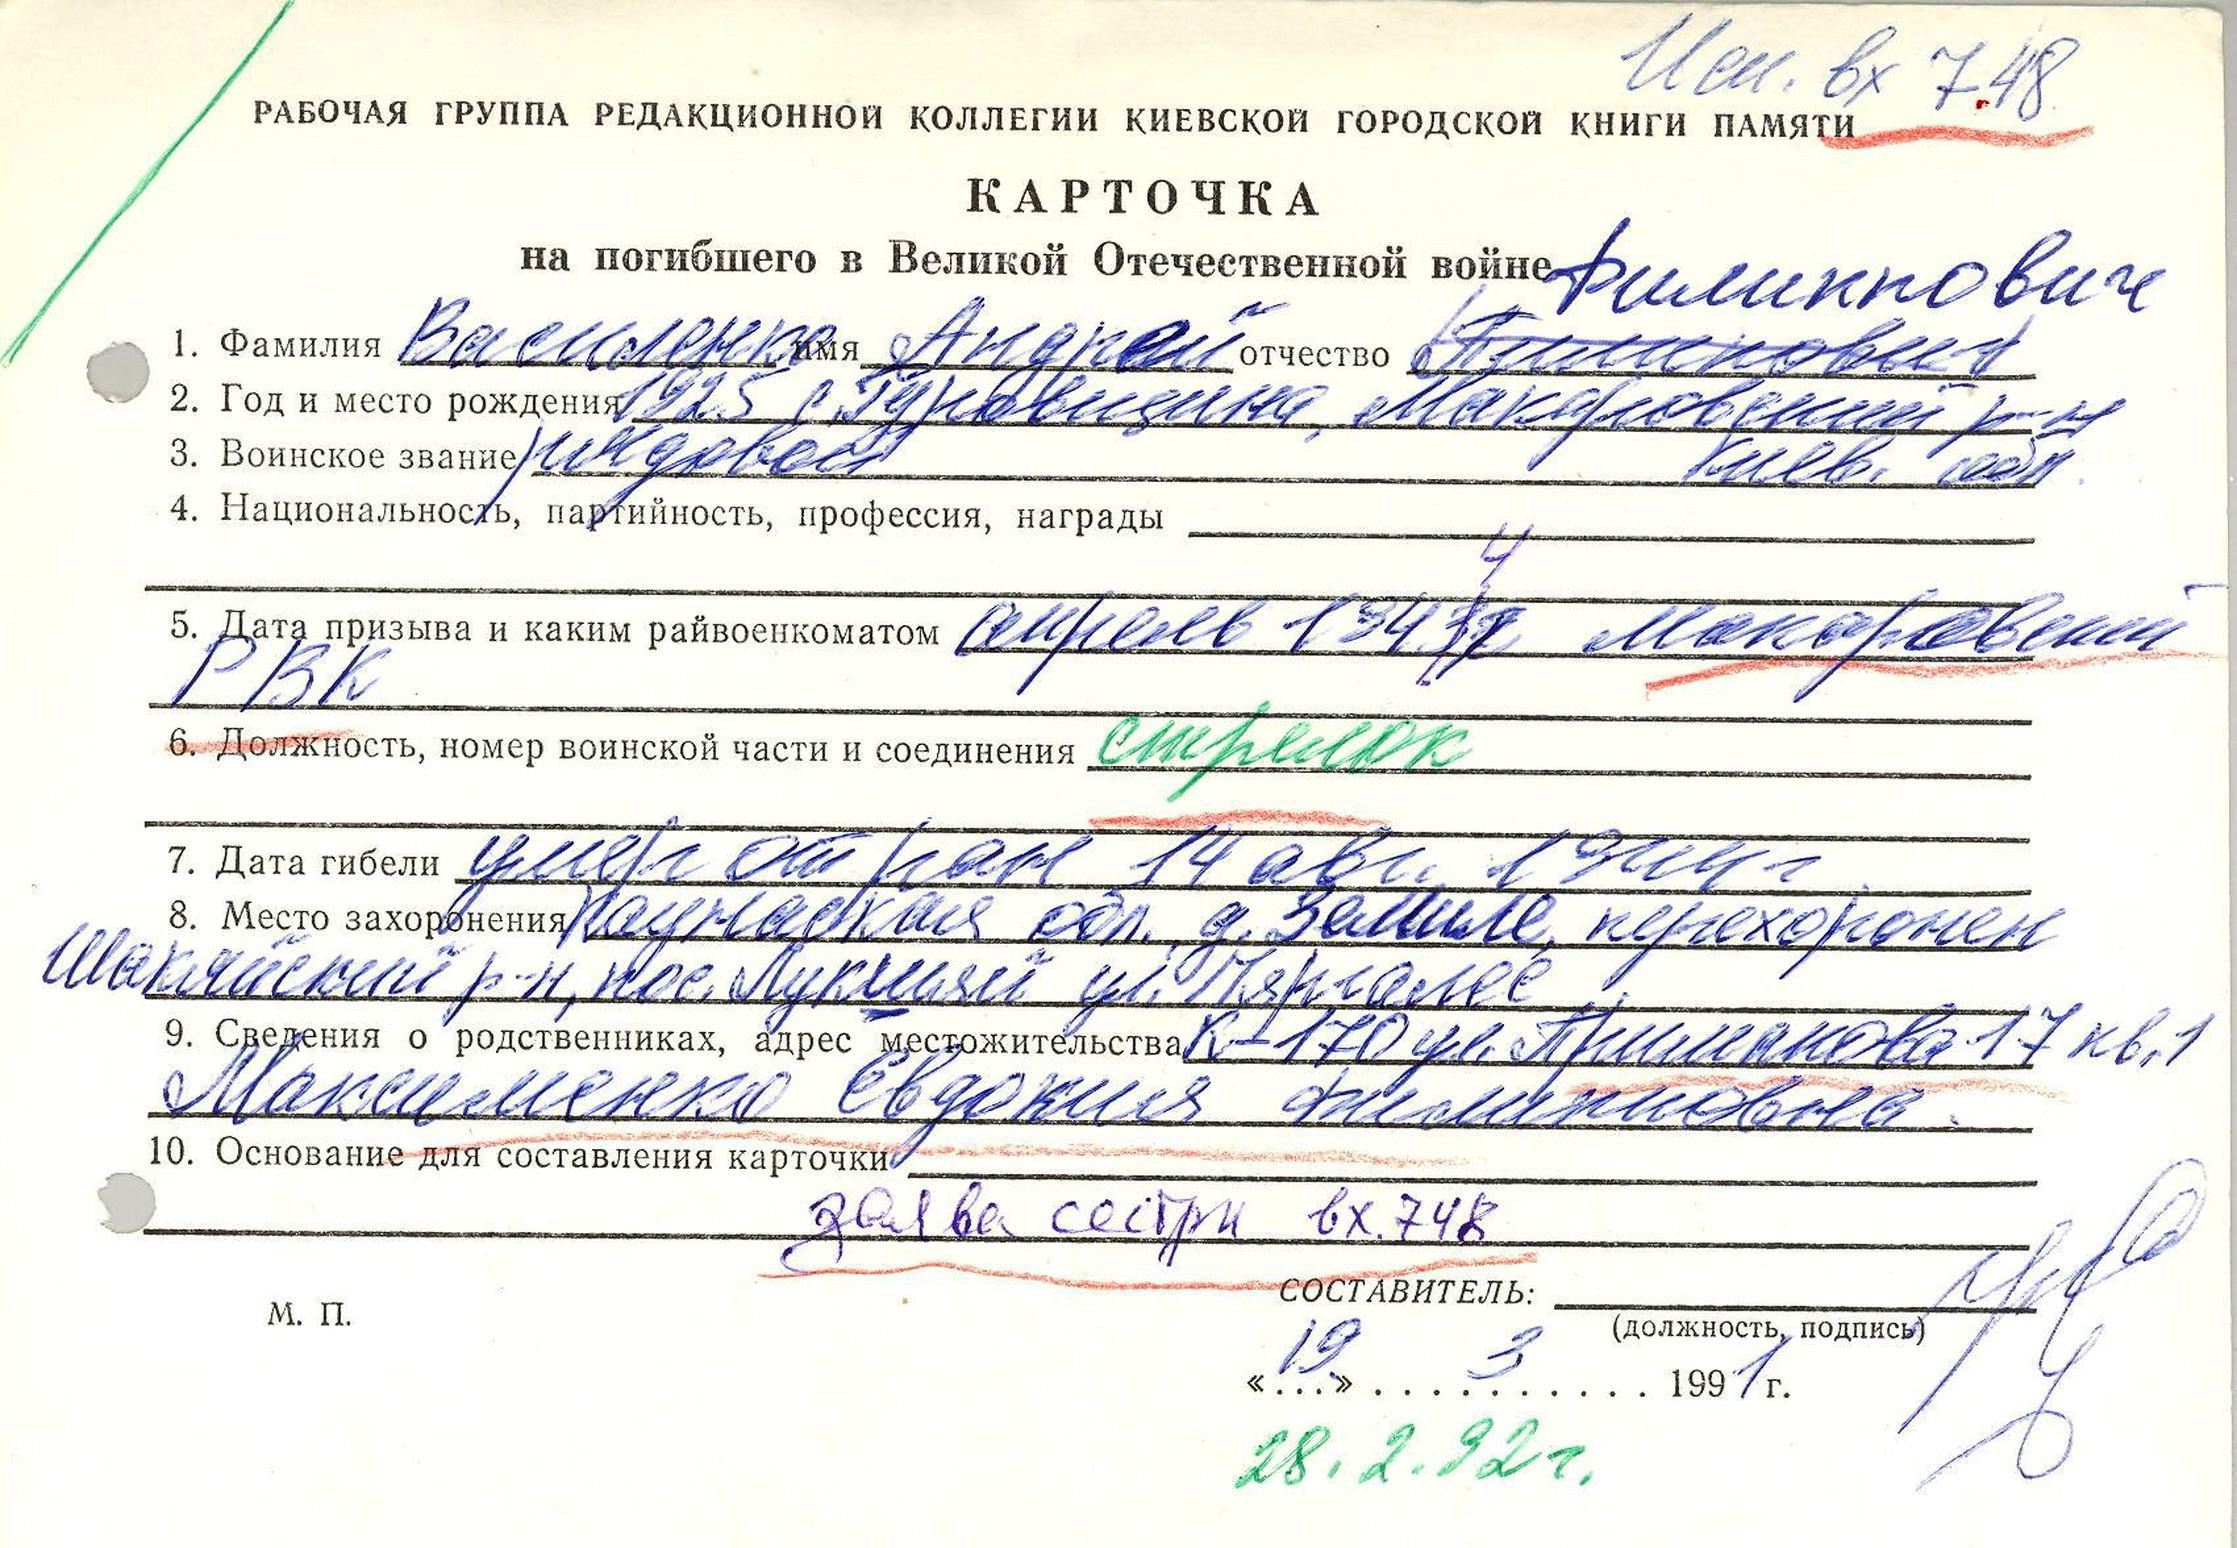 Исп. вх 748
РАБОЧАЯ ГРУППА РЕДАКЦИОННОЙ КОЛЛЕГИИ КИЕВСКОЙ ГОРОДСКОЙ КНИГИ ПАМЯТИ
КАРТОЧКА
на погибшего в Великой Отечественной войне
Филиппович
1. Фамилия Василенко имя Андрей отчество (Пилипович)
2. Год и место рождения 1925 с. Гуровщина, Макаровский р-н
3. Воинское звание рядовой Киев. обл.
4. Национальность, партийность, профессия, награды
4
5. Дата призыва и каким райвоенкоматом апрель 1943 Макаровский
РВК
6. Должность, номер воинской части и соединения стрелок
7. Дата гибели умер от ран 14 авг. 1944 г.
8. Место захоронения Каунасская обл., д. Земиле, перехоронен
Шакяйский р-н, пос. Лукшяй ул. Пяргалес
9. Сведения о родственниках, адрес местожительства К-170 ул. Прималова 17 кв. 1
Максименко Евдокия Филипповна.
10. Основание для составления карточки
заява сестри вх. 748
СОСТАВИТЕЛЬ:
М. П.
(должность, подпись)
«19» 3 1991 г.
28.2.92 г.